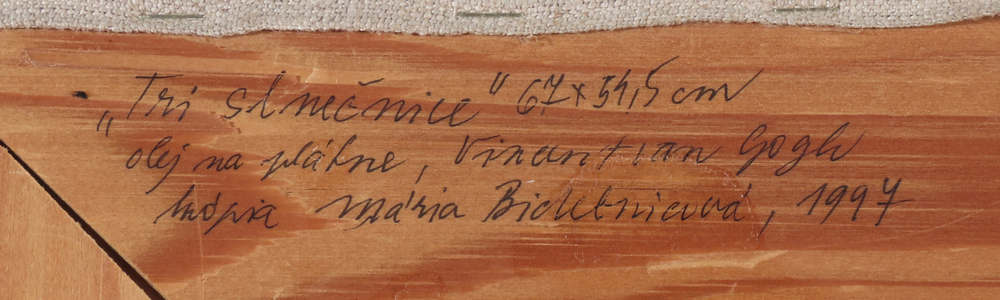 „Tri slnečnice" 67x54,5 cm
olej na plátne, Vincent van Gogh
kópia Mária, 1997